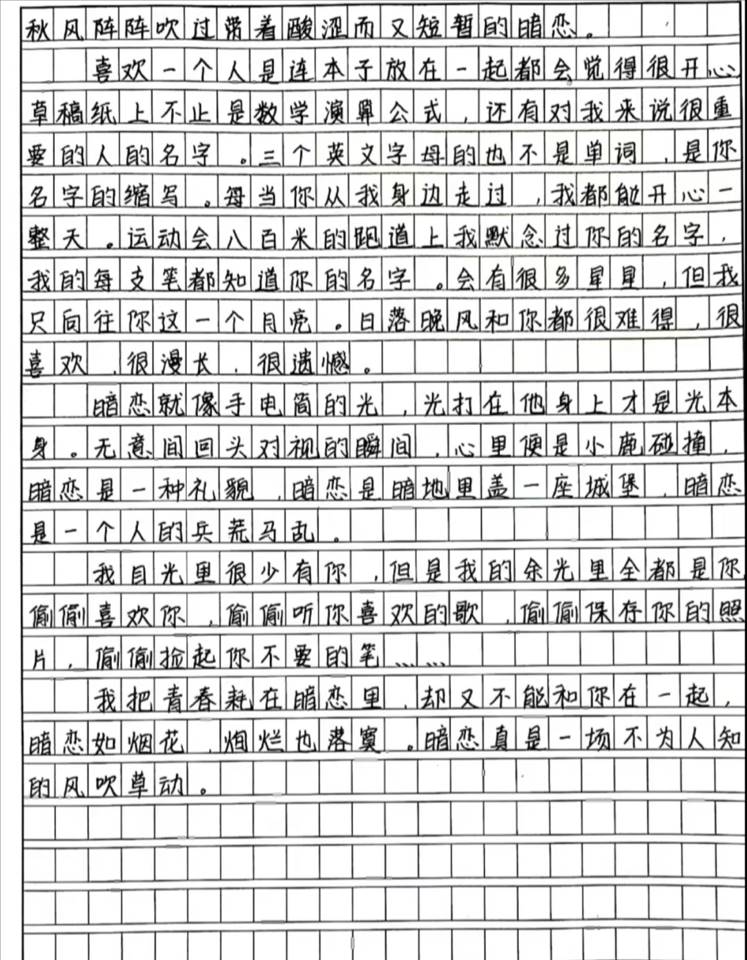 秋风阵阵吹过带着酸涩而又短暂的暗恋。
喜欢一个人是连本子放在一起都会觉得很开心
草稿纸上不止是数学演算公式，还有对我来说很重
要的人的名字。三个英文字母的也不是单词，是你
名字的缩写。每当你从我身边走过，我都能开心一
整天。运动会八百米的跑道上我默念过你的名字，
我的每支笔都知道你的名字。会有很多星星，但我
只向往你这一个月亮。日落晚风和你都很难得，很
喜欢，很漫长，很遗憾。
暗恋就像手电筒的光，光打在他身上才是光本
身。无意间回头对视的瞬间，心里便是小鹿碰撞，
暗恋是一种礼貌，暗恋是暗地里盖一座城堡，暗恋
是一个人的兵荒马乱。
我目光里很少有你，但是我的余光里全都是你
偷偷喜欢你，偷偷听你喜欢的歌，偷偷保存你的照
片，偷偷捡起你不要的笔……
我把青春耗在暗恋里，却又不能和你在一起，
暗恋如烟花，烟烂也落寞。暗恋真是一场不为人知
的风吹草动。